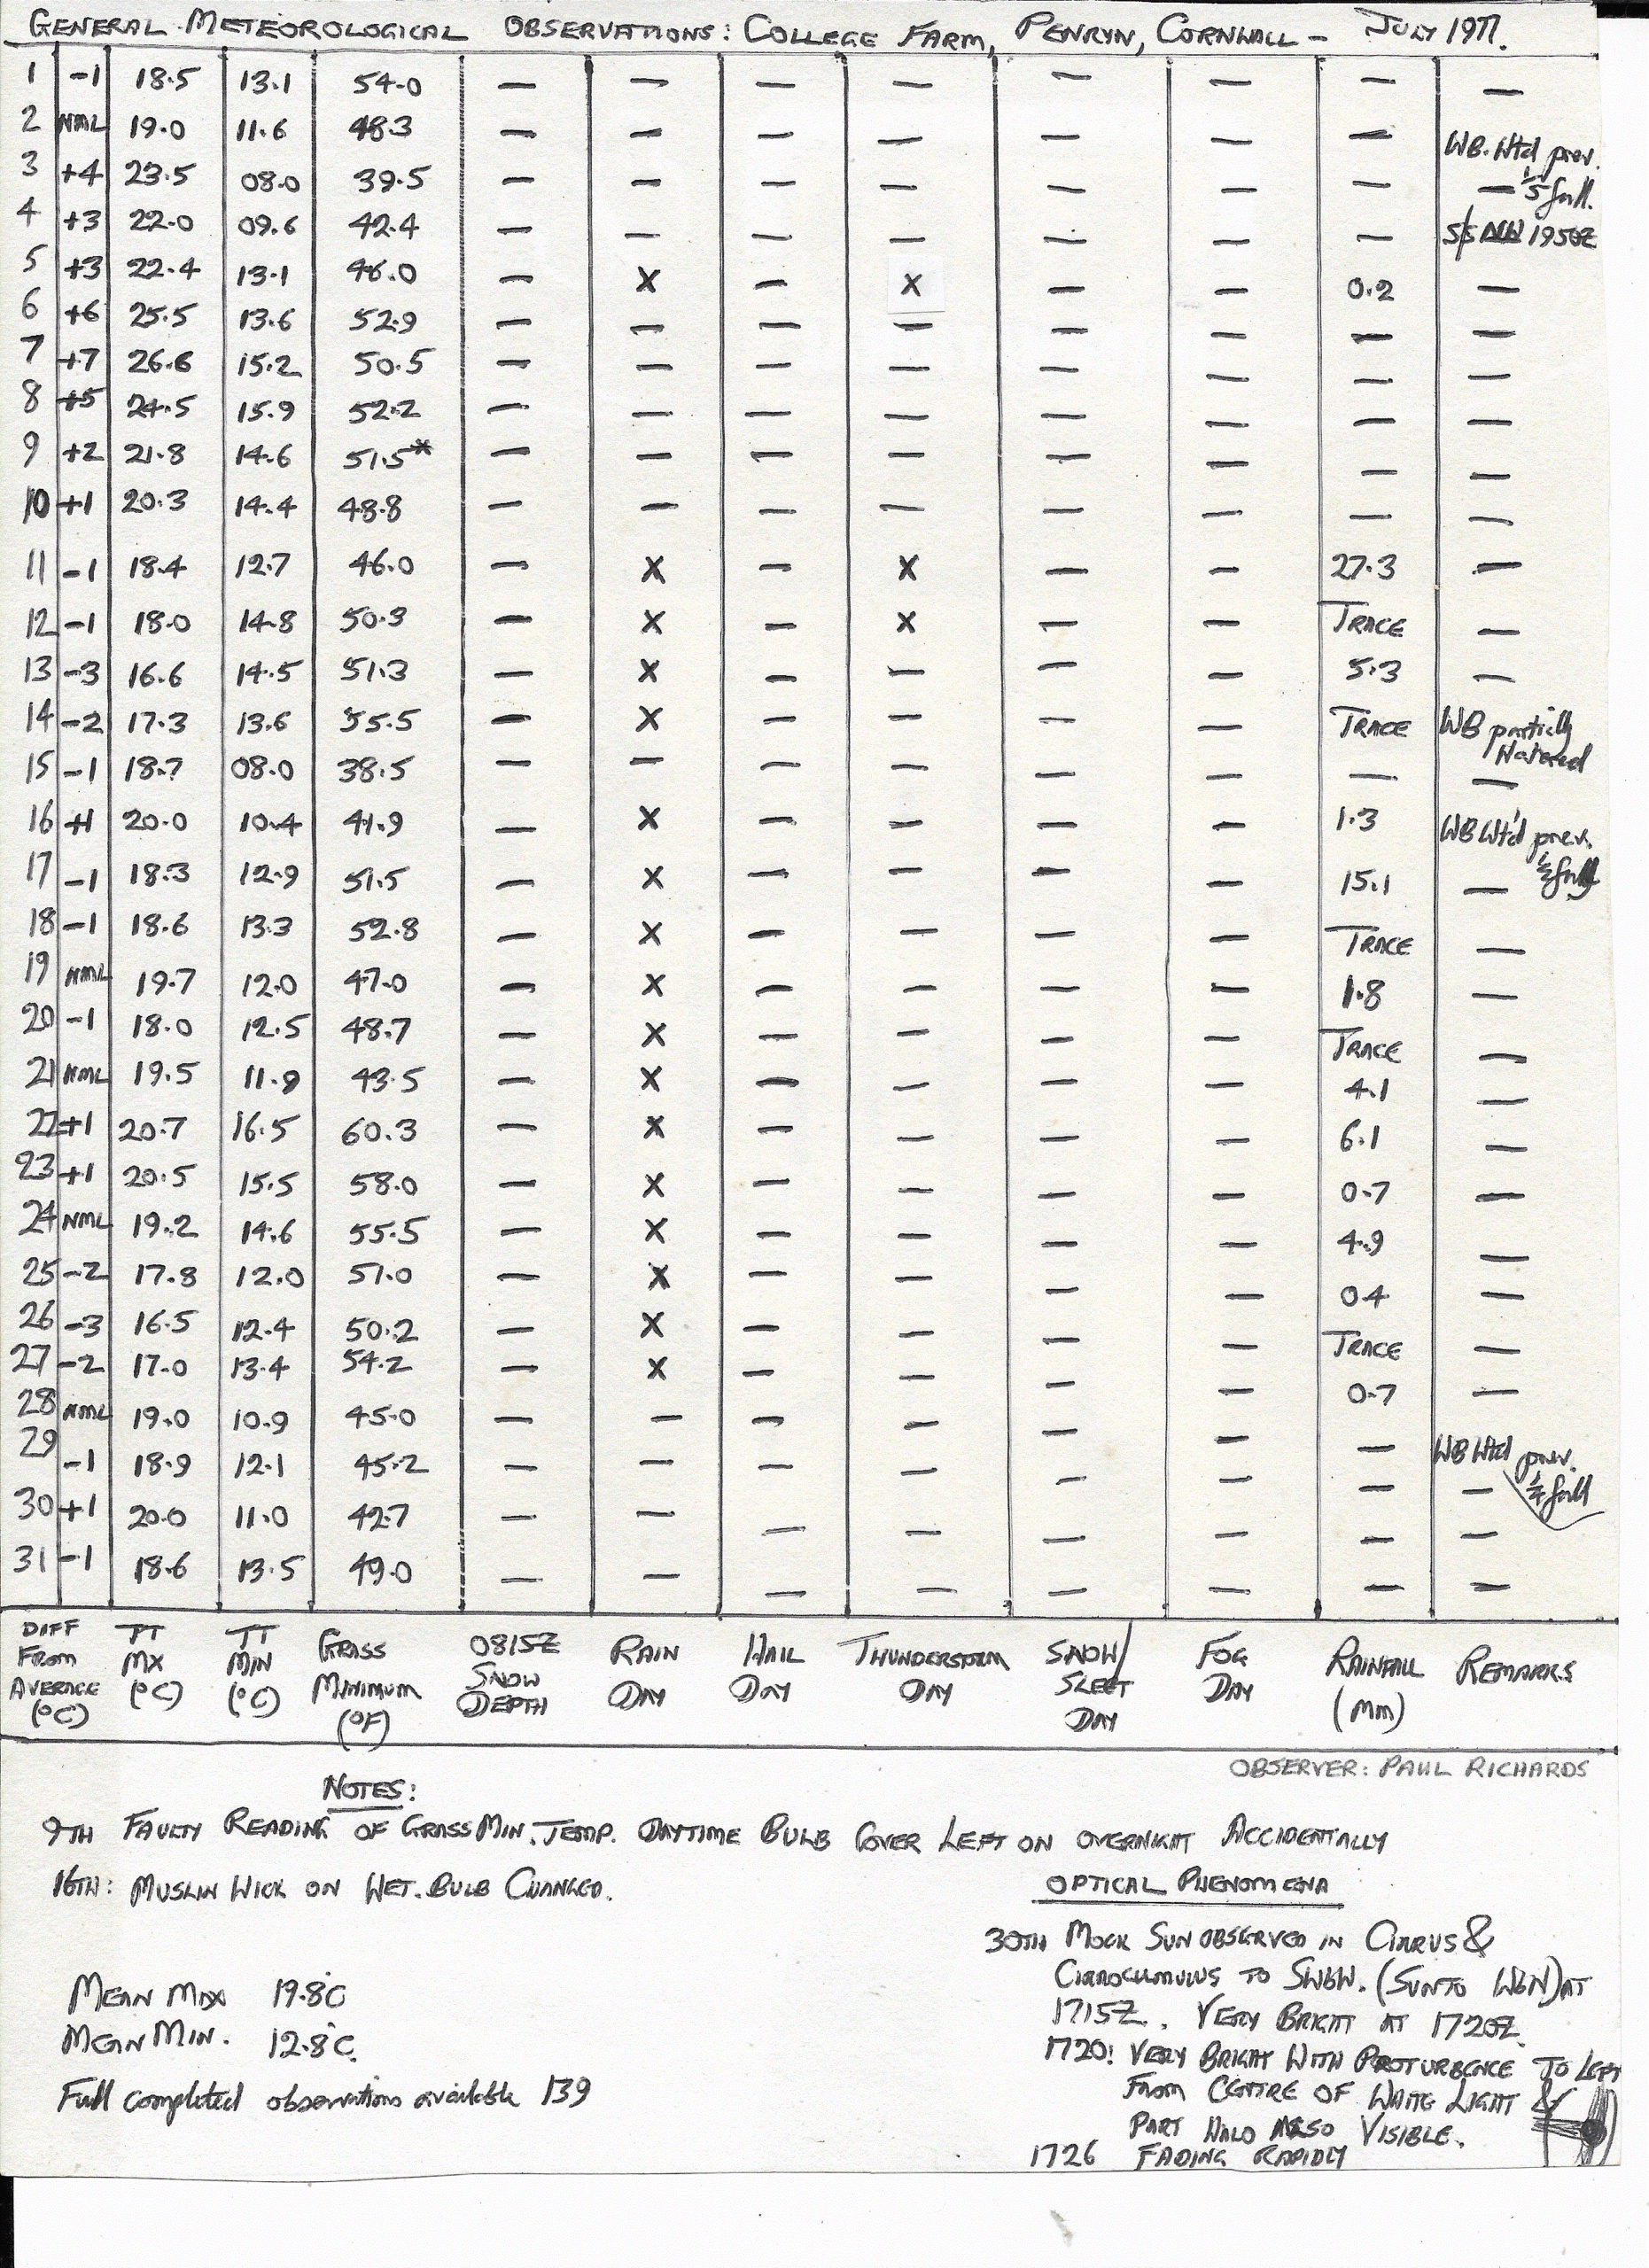 GENERAL METEOROLOGICAL OBSERVATIONS: COLLEGE FARM, PENRYN, CORNWALL - JULY 1977.
1 -1 18.5 13.1 54.0 — — — — — — — —
2 NML 19.0 11.6 48.3 — — — — — — — WB. Wtd prev.
3 +4 23.5 08.0 39.5 — — — — — — — — 1/5 full.
4 +3 22.0 09.6 42.4 — — — — — — — S/S NW 1950Z
5 +3 22.4 13.1 46.0 — X — X — — 0.2 —
6 +6 25.5 13.6 52.9 — — — — — — — —
7 +7 26.6 15.2 50.5 — — — — — — — —
8 +5 24.5 15.9 52.2 — — — — — — — —
9 +2 21.8 14.6 51.5* — — — — — — — —
10 +1 20.3 14.4 48.8 — — — — — — — —
11 -1 18.4 12.7 46.0 — X — X — — 27.3 —
12 -1 18.0 14.8 50.3 — X — X — — TRACE —
13 -3 16.6 14.5 51.3 — X — — — — 5.3 —
14 -2 17.3 13.6 55.5 — X — — — — TRACE WB partially
Watered
15 -1 18.7 08.0 38.5 — — — — — — — —
16 +1 20.0 10.4 41.9 — X — — — — 1.3 WB Wt'd prev.
17 -1 18.3 12.9 51.5 — X — — — — 15.1 — 1/2 full
18 -1 18.6 13.3 52.8 — X — — — — TRACE —
19 NML 19.7 12.0 47.0 — X — — — — 1.8 —
20 -1 18.0 12.5 48.7 — X — — — — TRACE —
21 NML 19.5 11.9 43.5 — X — — — — 4.1 —
22 +1 20.7 16.5 60.3 — X — — — — 6.1 —
23 +1 20.5 15.5 58.0 — X — — — — 0.7 —
24 NML 19.2 14.6 55.5 — X — — — — 4.9 —
25 -2 17.8 12.0 51.0 — X — — — — 0.4 —
26 -3 16.5 12.4 50.2 — X — — — — TRACE —
27 -2 17.0 13.4 54.2 — X — — — — 0.7 —
28 NML 19.0 10.9 45.0 — — — — — — — WB Wtd prev.
29 -1 18.9 12.1 45.2 — — — — — — — — 1/4 full
30 +1 20.0 11.0 42.7 — — — — — — — —
31 -1 18.6 13.5 49.0 — — — — — — — —
DIFF FROM AVERAGE (°C)
TT MX (°C)
TT MIN (°C)
GRASS MINIMUM (°F)
0815Z SNOW DEPTH
RAIN DAY
HAIL DAY
THUNDERSTORM DAY
SNOW/ SLEET DAY
FOG DAY
RAINFALL (MM)
REMARKS
OBSERVER: PAUL RICHARDS
NOTES:
9TH FAULTY READING OF GRASS MIN. TEMP. DAYTIME BULB COVER LEFT ON OVERNIGHT ACCIDENTALLY
16TH: MUSLIN WICK ON WET. BULB CHANGED.
OPTICAL PHENOMENA
30TH MOCK SUN OBSERVED IN CIRRUS &
CIRROCUMULUS TO SWBW. (SUN TO WBN) AT
1715Z. VERY BRIGHT AT 1720Z.
1720: VERY BRIGHT WITH PROTURBENCE TO LEFT
FROM CENTRE OF WHITE LIGHT &
PART HALO ALSO VISIBLE.
1726 FADING RAPIDLY
MEAN MAX 19.8°C
MEAN MIN. 12.8°C.
Full completed observations available 139